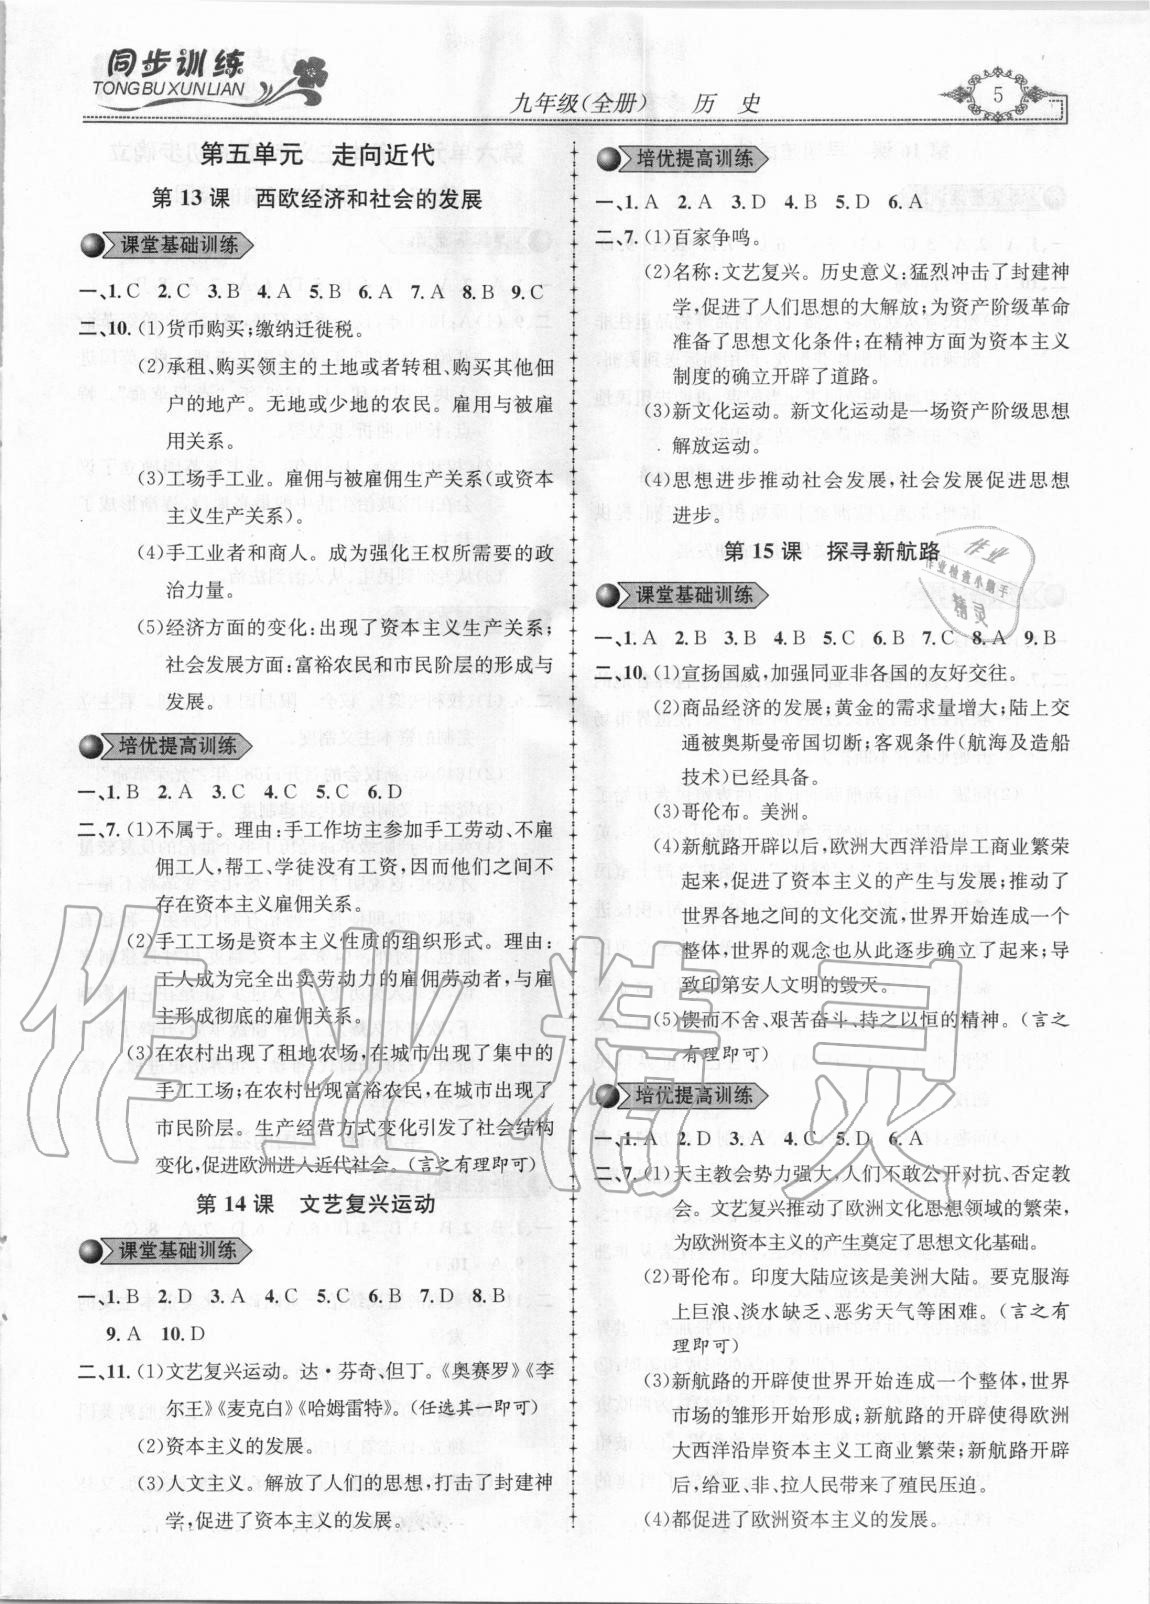 同步训练
TONGBU XUNLIAN
九年级(全册) 历 史
5
第五单元 走向近代
第 13 课 西欧经济和社会的发展
课堂基础训练
一、1. C 2. C 3. B 4. A 5. B 6. A 7. A 8. B 9. C
二、10. (1)货币购买;缴纳迁徙税。
(2)承租、购买领主的土地或者转租、购买其他佃
户的地产。无地或少地的农民。雇用与被雇
用关系。
(3)工场手工业。雇佣与被雇佣生产关系(或资本
主义生产关系)。
(4)手工业者和商人。成为强化王权所需要的政
治力量。
(5)经济方面的变化:出现了资本主义生产关系;
社会发展方面:富裕农民和市民阶层的形成与
发展。
培优提高训练
一、1. B 2. A 3. C 4. C 5. C 6. D
二、7. (1)不属于。理由:手工作坊主参加手工劳动、不雇
佣工人,帮工、学徒没有工资,因而他们之间不
存在资本主义雇佣关系。
(2)手工工场是资本主义性质的组织形式。理由:
工人成为完全出卖劳动力的雇佣劳动者,与雇
主形成彻底的雇佣关系。
(3)在农村出现了租地农场,在城市出现了集中的
手工工场;在农村出现富裕农民,在城市出现了
市民阶层。生产经营方式变化引发了社会结构
变化,促进欧洲进入近代社会。(言之有理即可)
第 14 课 文艺复兴运动
课堂基础训练
一、1. B 2. D 3. A 4. C 5. C 6. B 7. D 8. B
9. A 10. D
二、11. (1)文艺复兴运动。达·芬奇、但丁。《奥赛罗》《李
尔王》《麦克白》《哈姆雷特》。(任选其一即可)
(2)资本主义的发展。
(3)人文主义。解放了人们的思想,打击了封建神
学,促进了资本主义的发展。
培优提高训练
一、1. A 2. A 3. D 4. B 5. D 6. A
二、7. (1)百家争鸣。
(2)名称:文艺复兴。历史意义:猛烈冲击了封建神
学,促进了人们思想的大解放;为资产阶级革命
准备了思想文化条件;在精神方面为资本主义
制度的确立开辟了道路。
(3)新文化运动。新文化运动是一场资产阶级思想
解放运动。
(4)思想进步推动社会发展,社会发展促进思想
进步。
第 15 课 探寻新航路
课堂基础训练
一、1. A 2. B 3. B 4. B 5. C 6. B 7. C 8. A 9. B
二、10. (1)宣扬国威,加强同亚非各国的友好交往。
(2)商品经济的发展;黄金的需求量增大;陆上交
通被奥斯曼帝国切断;客观条件(航海及造船
技术)已经具备。
(3)哥伦布。美洲。
(4)新航路开辟以后,欧洲大西洋沿岸工商业繁荣
起来,促进了资本主义的产生与发展;推动了
世界各地之间的文化交流,世界开始连成一个
整体,世界的观念也从此逐步确立了起来;导
致印第安人文明的毁灭。
(5)锲而不舍、艰苦奋斗、持之以恒的精神。(言之
有理即可)
培优提高训练
一、1. A 2. D 3. A 4. C 5. D 6. A
二、7. (1)天主教会势力强大,人们不敢公开对抗、否定教
会。文艺复兴推动了欧洲文化思想领域的繁荣,
为欧洲资本主义的产生奠定了思想文化基础。
(2)哥伦布。印度大陆应该是美洲大陆。要克服海
上巨浪、淡水缺乏、恶劣天气等困难。(言之有
理即可)
(3)新航路的开辟使世界开始连成一个整体,世界
市场的雏形开始形成;新航路的开辟使得欧洲
大西洋沿岸资本主义工商业繁荣;新航路开辟
后,给亚、非、拉人民带来了殖民压迫。
(4)都促进了欧洲资本主义的发展。
作业
作业检查小助手
精灵
作业精灵